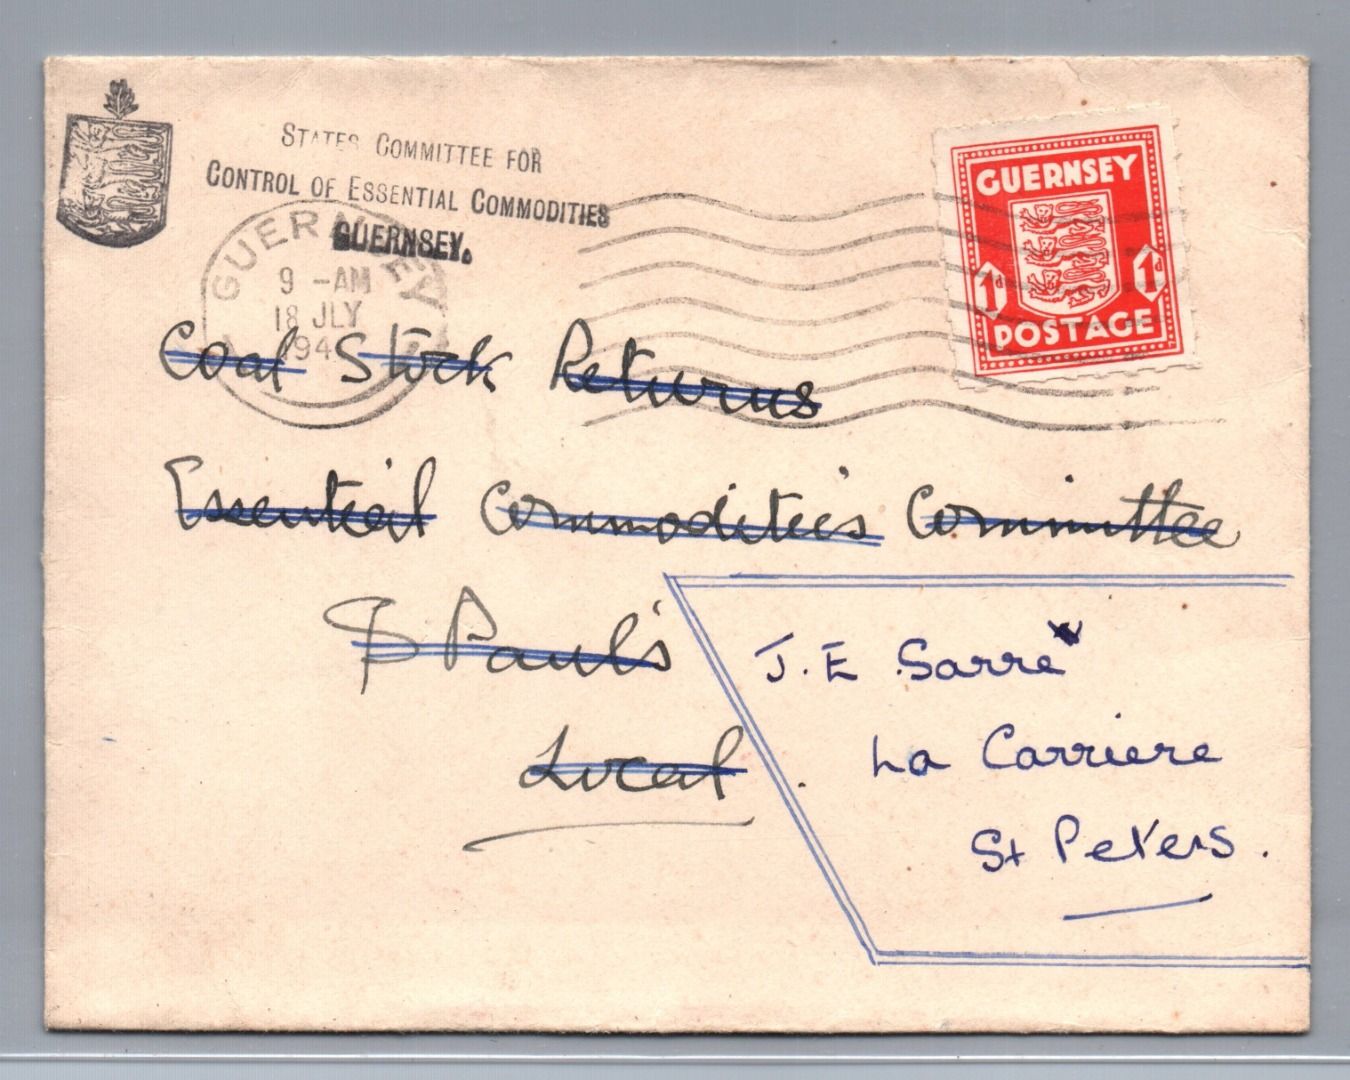 STATES COMMITTEE FOR
CONTROL OF ESSENTIAL COMMODITIES
GUERNSEY.
GUERNSEY
9 -AM
18 JLY
194
GUERNSEY
1d 1d
POSTAGE
Coal Stock Returns
Essential Commodities Committee
St Paul's
Local
J. E Sarre
La Carriere
St Peters.